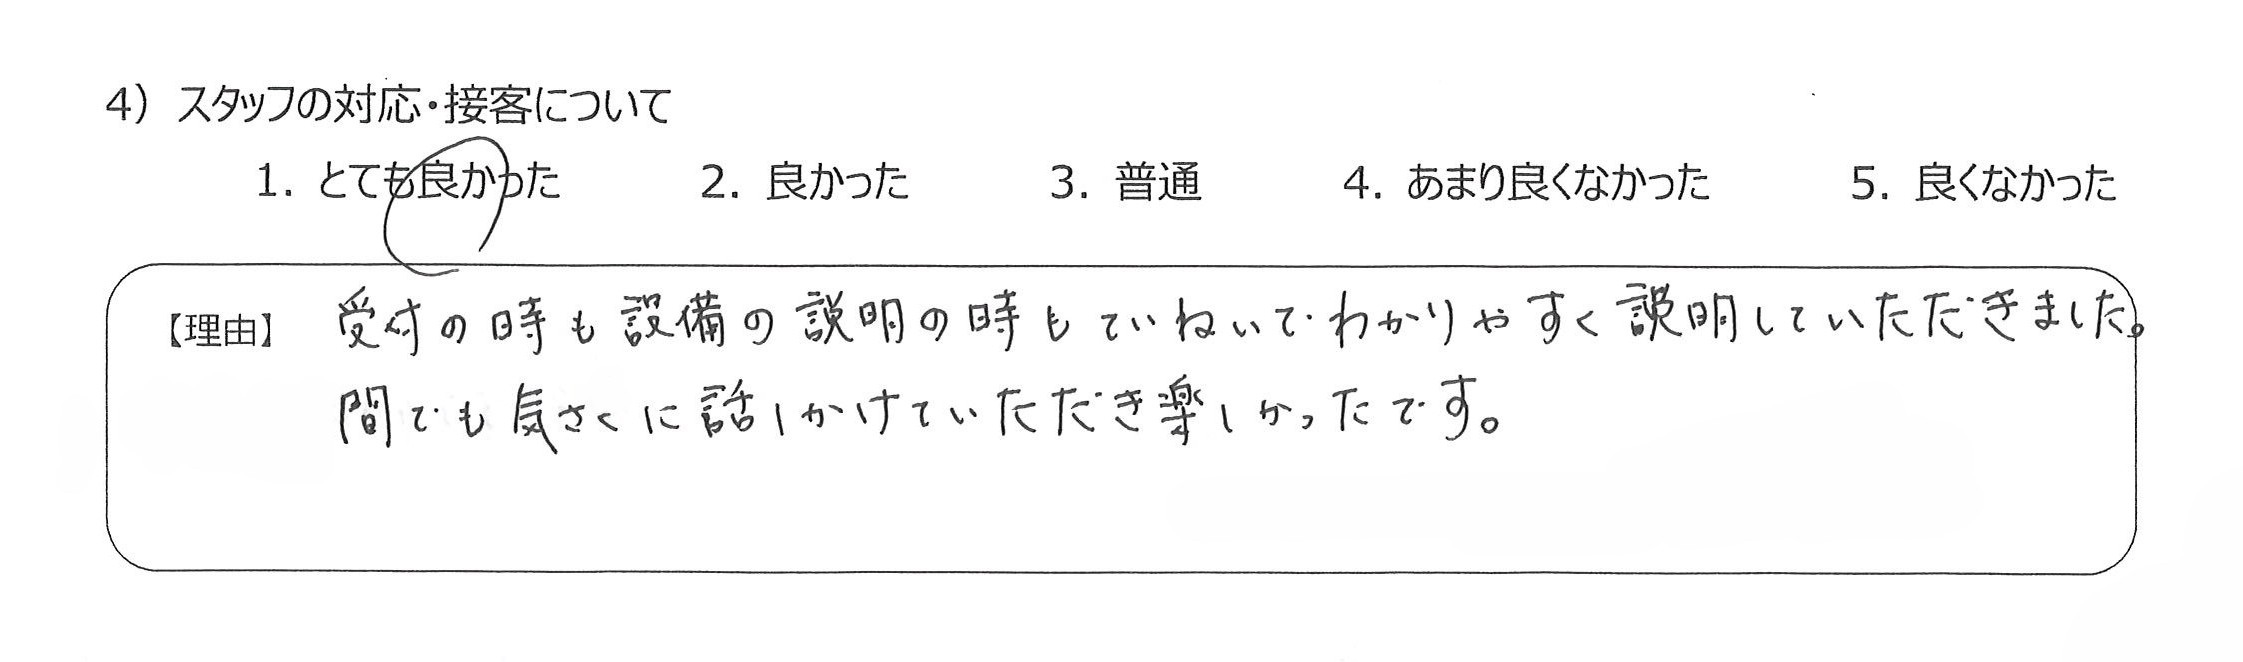 4) スタッフの対応・接客について
1. とても良かった 2. 良かった 3. 普通 4. あまり良くなかった 5. 良くなかった
【理由】 受付の時も設備の説明の時もていねいでわかりやすく説明していただきました。
間でも気さくに話しかけていただき楽しかったです。